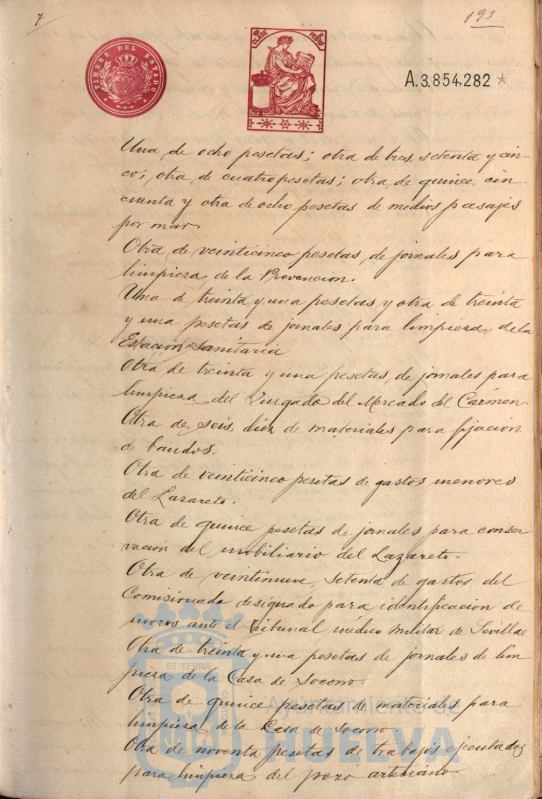 7
193
TIMBRE DEL ESTADO
A.3.854.282
Una, de ocho pesetas; otra de tres, setenta y cin-
co; otra, de cuatro pesetas; otra, de quince, cin-
cuenta y otra de ocho pesetas de medios pasajes
por mar.
Otra, de veinticinco pesetas, de jornales para
limpieza de la Prevencion.
Una d treinta y una pesetas y otra de treinta
y una pesetas de jornales para limpieza, de la
Estación Sanitaria
Otra de treinta y una pesetas, de jornales para
limpieza del Juzgado del Mercado del Carmen.
Otra de seis, diez de materiales para fijacion
de bandos.
Otra de veinticinco pesetas de gastos menores
del Lazareto.
Otra de quince pesetas de jornales para conser-
vacion del mobiliario del Lazareto.
Otra de veintinueve, setenta de gastos del
Comisionado designado para identificacion de
mozos ante el Tribunal médico militar de Sevilla
Otra de treinta y una pesetas de jornales de lim-
pieza de la Casa de Socorro.
Otra de quince pesetas de materiales para
limpieza, de la Casa de Socorro
Otra de noventa pesetas de trabajos ejecutados
para limpieza del pozo artesiano.
ET TERRÆ
Ayuntamiento de
HUELVA